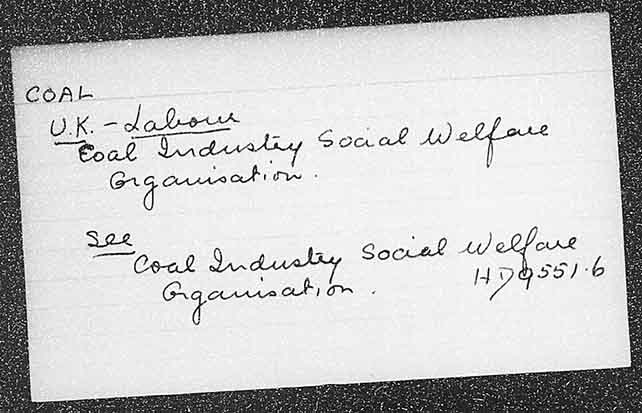 COAL
U.K. - Labour
Coal Industry Social Welfare
Organisation.
See
Coal Industry Social Welfare
Organisation. HD9551.6